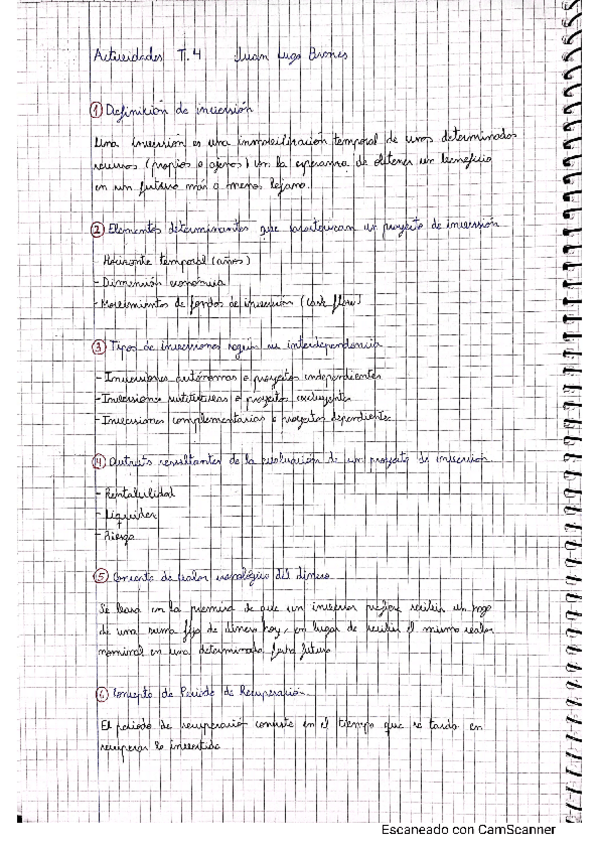 Actividades T.4 Juan Lugo Briones
① Definición de inversión
Una inversión es una inmovilización temporal de unos determinados
recursos (propios o ajenos) con la esperanza de obtener un beneficio
en un futuro más o menos lejano.
② Elementos determinantes que caracterizan un proyecto de inversión
- Horizonte temporal (años)
- Dimensión económica
- Movimientos de fondos de inversión (cash flow)
③ Tipos de inversiones según su interdependencia
- Inversiones autónomas o proyectos independientes
- Inversiones sustitutivas o proyectos excluyentes
- Inversiones complementarias o proyectos dependientes
④ resultantes de la evaluación de un proyecto de inversión
- Rentabilidad
- Liquidez
- Riesgo
⑤ Concepto de valor cronológico del dinero
Se basa en la premisa de que un inversor prefiere recibir un pago
de una suma fija de dinero hoy, en lugar de recibir el mismo valor
nominal en una determinada fecha futura
⑥ Concepto de Periodo de Recuperación
El periodo de recuperación consiste en el tiempo que se tarda en
recuperar lo invertido
Escaneado con CamScanner